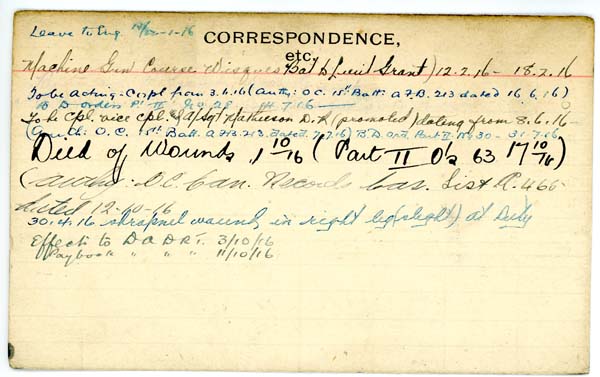 Leave to Eng. 1-16
CORRESPONDENCE,
etc.
Machine Gun Course Wisques (Lieut Grant) 12.2.16 - 18.2.16
To be acting-Corpl from 3.6.16 (Auth: O.C. 15th Batt: A.F.B. 213 dated 16.6.16)
B D orders Pt II No 28 14.7.16
To be Cpl. vice Cpl. & A/Sgt Mathieson D.R. (promoted) dating from 8.6.16 -
(Auth: O.C. 15th Batt. A.F.B. 213. Dated 7.7.16) B.D. Ord. Part II. No 30 - 31.7.16
Died of Wounds, 1 10/16 (Part II O's 63 17 10/16)
(Auth: O.C. Can. Records Cas. List A. 466
dated 12-10-16
30.4.16 shrapnel wounds in right leg (slight) at Duty
Effects to D.A.D.R.T. 3/10/16
Paybook " " " 11/10/16